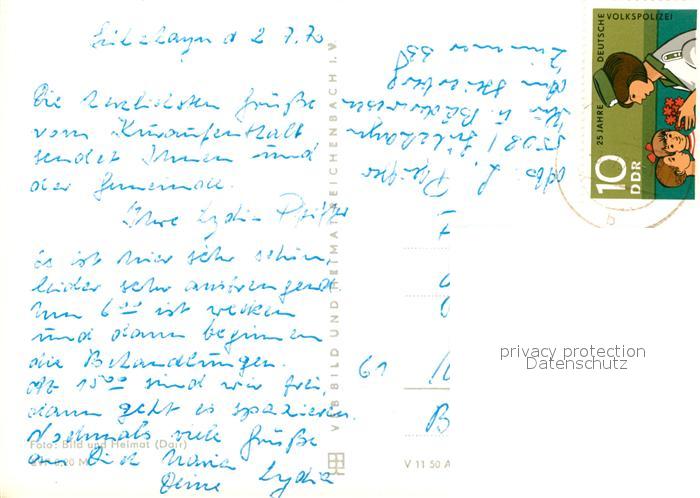 Sülzhayn d 2.7.70
Die herzlichsten Grüße
vom Kuraufenthalt
sendet Ihnen und
der Gemeinde.
Ihre Lydia Pfeiffer
Es ist hier sehr schön,
leider sehr anstrengend
Um 6 00 ist wecken
und dann beginnen
die Behandlungen.
Ab 15 00 sind wir frei,
dann geht es spazieren.
Nochmals viele Grüße
an Dich Maria
Deine Lydia
Foto: Bild und Heimat (Dair)
VEB BILD UND HEIMAT REICHENBACH I. V.
V 11 50 A
Abs. L. Pfeiffer
5508 / Sülzhayn
Zimmer 35
61
B
25 JAHRE DEUTSCHE VOLKSPOLIZEI
10
DDR
privacy protection
Datenschutz